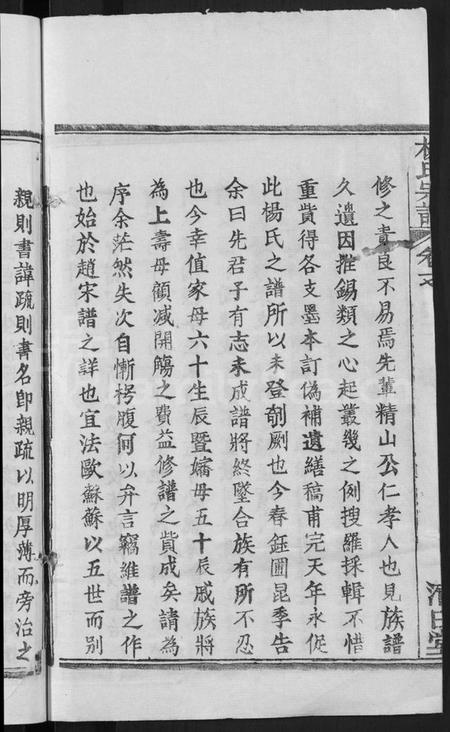 楊氏宗譜 卷之
清白堂
修之責良不易焉先輩精山公仁孝人也見族譜
久遺因推錫類之心起叢幾之例搜羅採輯不惜
重貲得各支墨本訂偽補遺繕稿甫完天年永促
此楊氏之譜所以未登剞劂也今春鈺圃昆季告
余曰先君子有志未成譜將終墜合族有所不忍
也今幸值家母六十生辰暨嬸母五十辰戚族將
為上壽母願減開觴之費益修譜之貲成矣請為
序余茫然失次自慚枵腹何以弁言竊維譜之作
也始於趙宋譜之詳也宜法歐蘇蘇以五世而別
親則書諱疏則書名卽親疏以明厚薄而旁治之